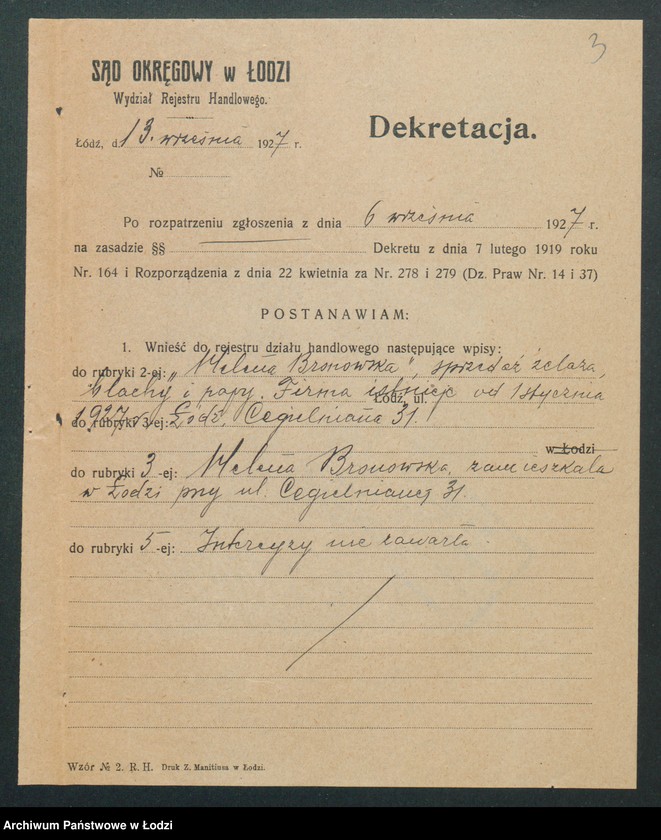 3
SĄD OKRĘGOWY w ŁODZI
Wydział Rejestru Handlowego.
Dekretacja.
Łódź, d. 13. września 1927 r.
№
Po rozpatrzeniu zgłoszenia z dnia 6 września 1927 r.
na zasadzie §§ Dekretu z dnia 7 lutego 1919 roku
Nr. 164 i Rozporządzenia z dnia 22 kwietnia za Nr. 278 i 279 (Dz. Praw Nr. 14 i 37)
POSTANAWIAM:
1. Wnieść do rejestru działu handlowego następujące wpisy:
do rubryki 2-ej: „Helena Bronowska", sprzedaż żelaza,
blachy i papy. Firma istnieje od 1 stycznia
Łódź, ul.
1927 r. Łódź, Cegielniana 31.
do rubryki 3-ej:
w Łodzi
do rubryki 3-ej: Helena Bronowska, zamieszkała
w Łodzi przy ul. Cegielnianej 31.
do rubryki 5-ej: Intercyzy nie zawarła
Wzór № 2. R. H. Druk Z. Manitiusa w Łodzi.
Archiwum Państwowe w Łodzi